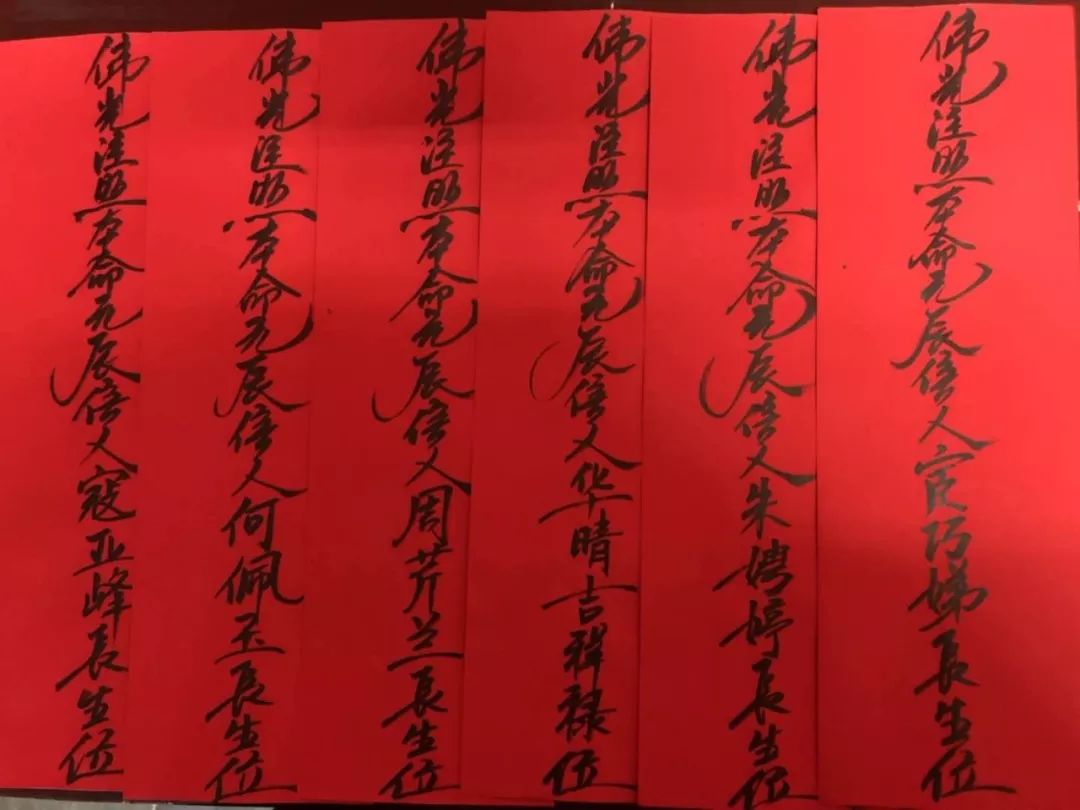 佛光注照本命元辰信人宦巧娣長生位
佛光注照本命元辰信人朱娉婷長生位
佛光注照本命元辰信人华晴吉祥禄位
佛光注照本命元辰信人周芹兰長生位
佛光注照本命元辰信人何佩玉長生位
佛光注照本命元辰信人寇亚峰長生位